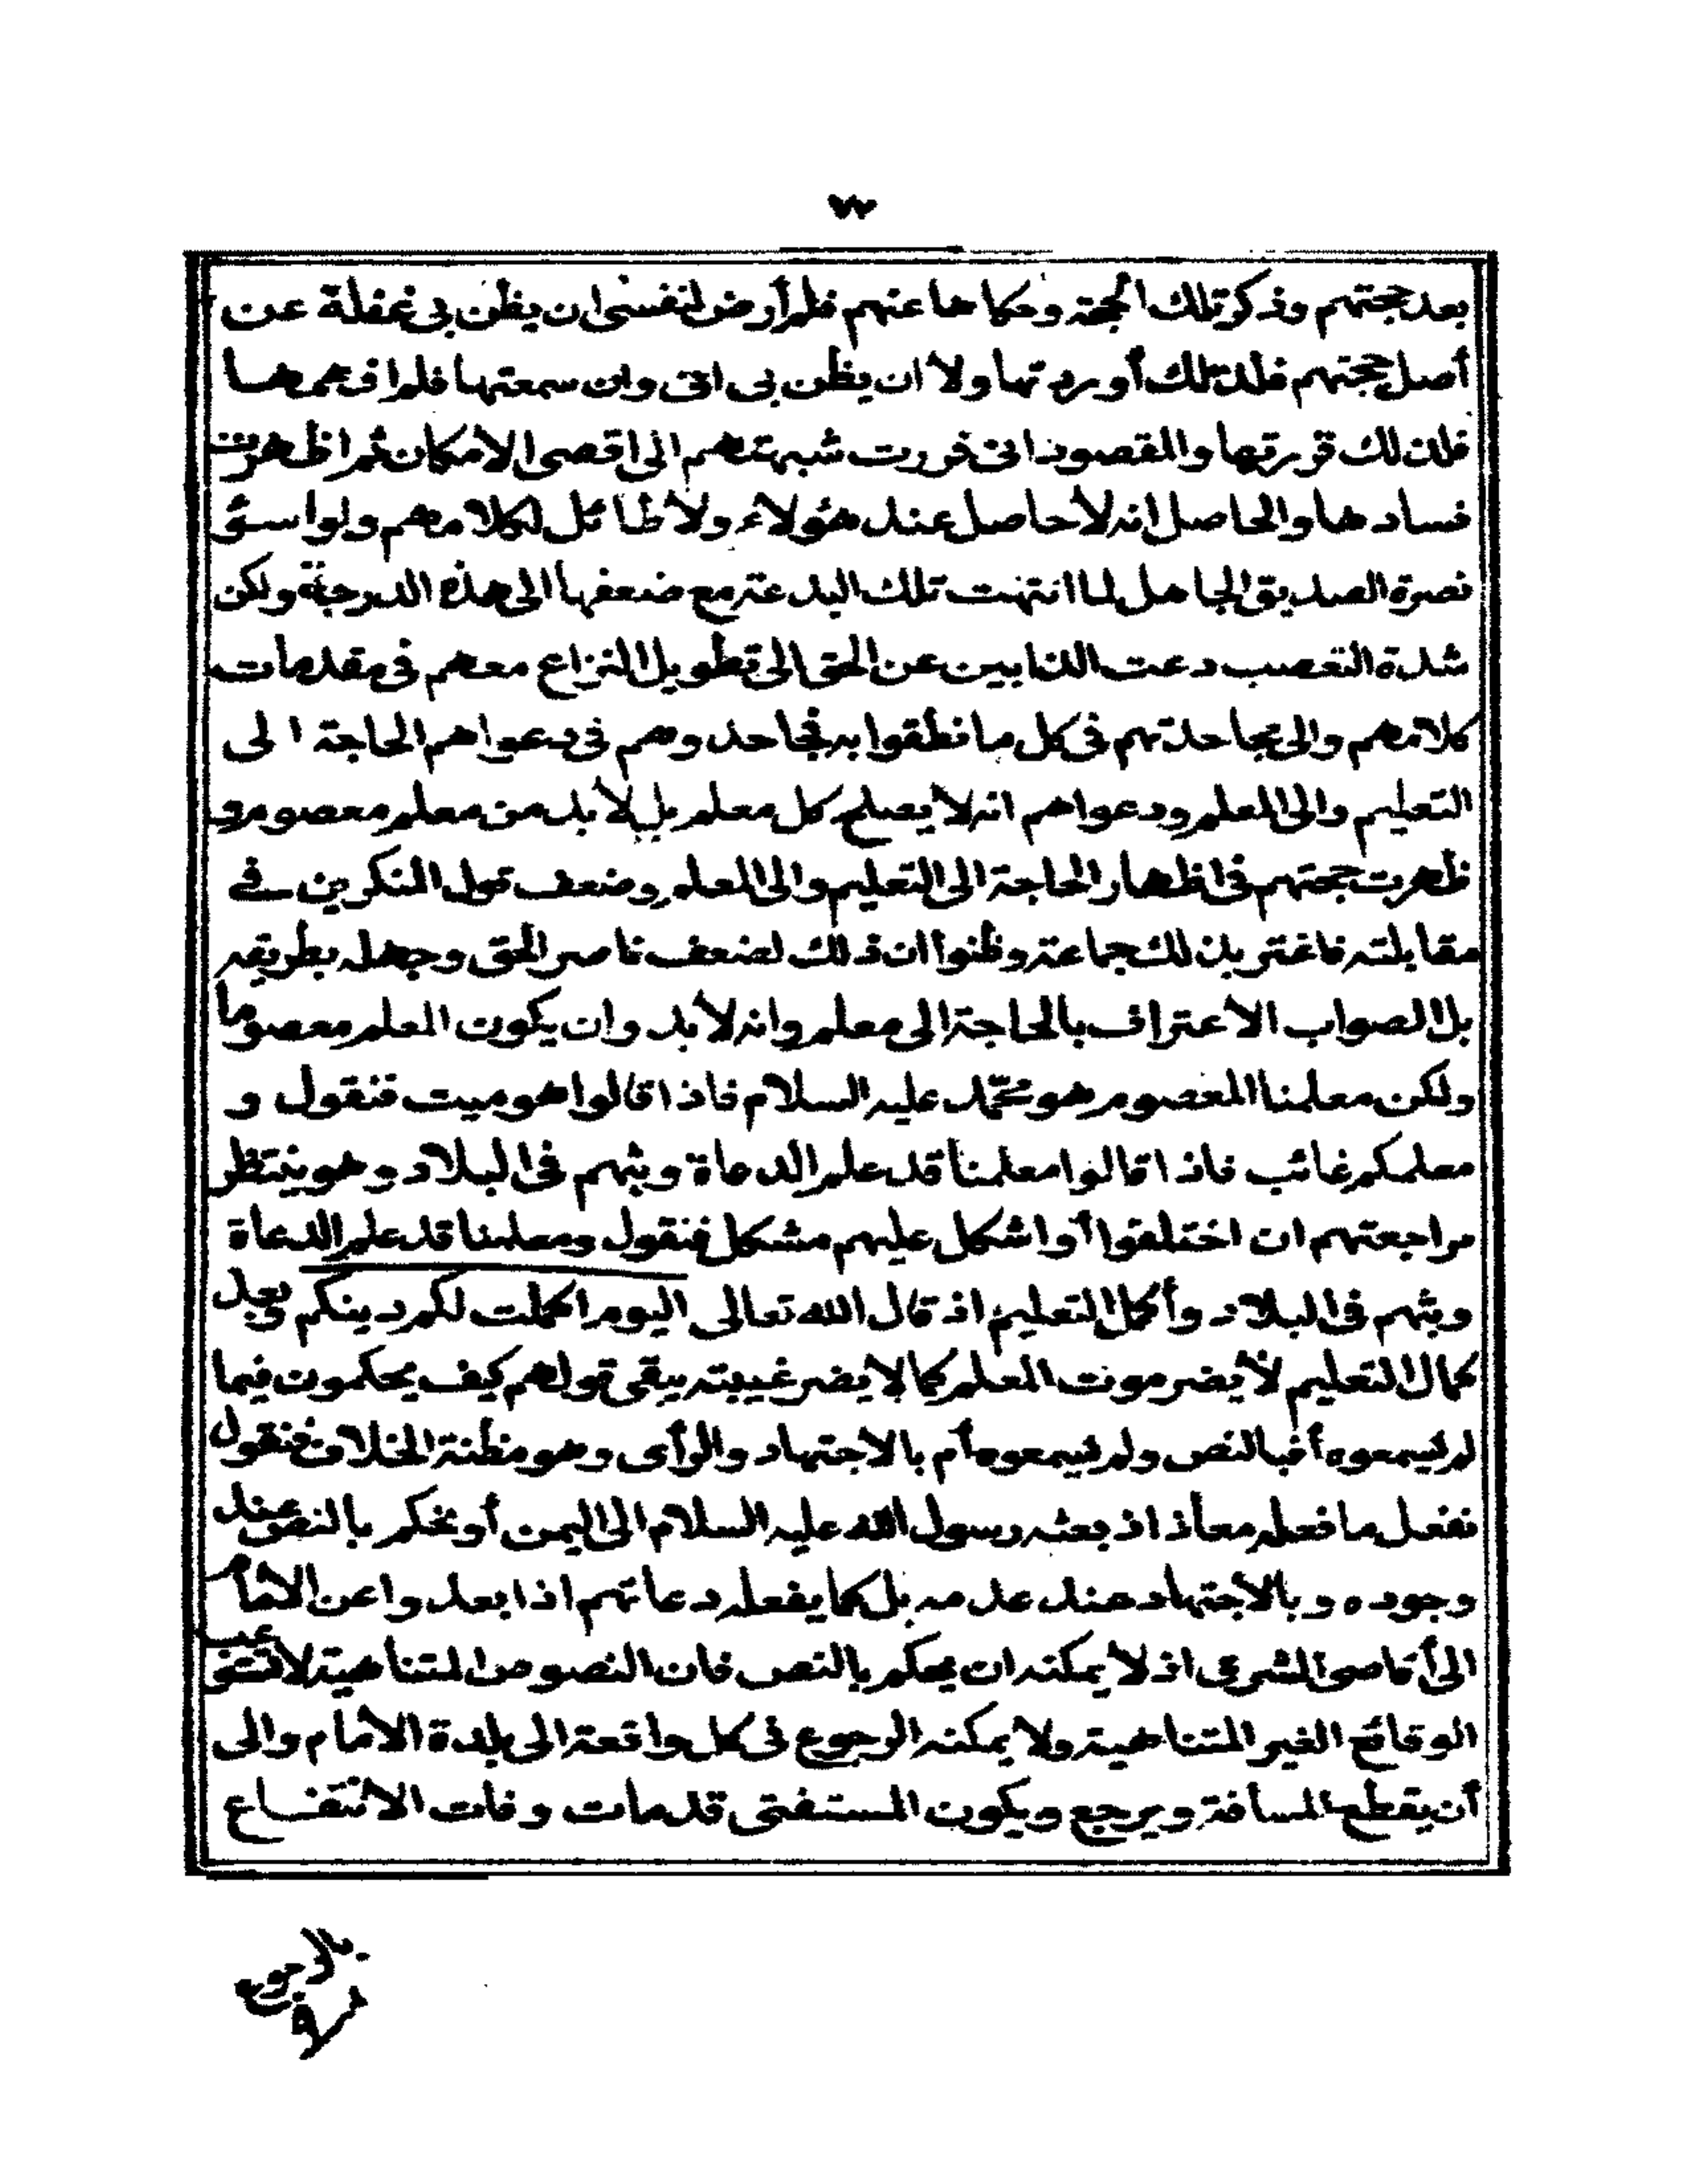 ٢٧
بعد حجتهم وذكر تلك الحجة وحكاها عنهم فلم أرض لنفسى ان يظن بى غفلة عن
أصل حجتهم فلذلك أوردتها ولا ان يظن بى انى وان سمعتها فلم افهمهــا
فلذلك قررتها والمقصود انى قررت شبهتهم الى اقصى الامكان ثم اظهرت
فسادها والحاصل انه لا حاصل عند هؤلاء ولا طائل لكلامهم ولولا سؤ
نصرة الصديق الجاهل لما انتهت تلك البدعة مع ضعفها الى هذه الدرجة ولكن
شدة التعصب دعت الذابين عن الحق الى تطويل النزاع معهم فى مقدمات
كلامهم والى مجاحدتهم فى كل ما نطقوا به فجاحدوهم فى دعواهم الحاجة الى
التعليم والى المعلم ودعواهم انه لا يصلح كل معلم بل لا بد من معلم معصوم و
ظهرت حجتهم فى اظهار الحاجة الى التعليم والى المعلم وضعف قول المنكرين فى
مقابلته فاغتر بذلك جماعة وظنوا ان ذلك لضعف ناصر الحق وجهله بطريقه
بل الصواب الاعتراف بالحاجة الى معلم وانه لا بد وان يكون المعلم معصوما
ولكن معلمنا المعصوم هو محمّد عليه السلام فاذا قالوا هو ميت فنقول و
معلمكم غائب فاذا قالوا معلمنا قد علم الدعاة وبثهم فى البلاد وهو ينتظر
مراجعتهم ان اختلفوا أو اشكل عليهم مشكل فنقول ومعلمنا قد علم الدعاة
وبثهم فى البلاد وأكمل التعليم اذ قال الله تعالى اليوم اكملت لكم دينكم وبعد
كمال التعليم لا يضر موت المعلم كما لا يضر غيبته يبقى قولهم كيف يحكمون فيما
لم يسمعوه أفبالنص ولم يسمعوه أم بالاجتهاد والرأى وهو مظنة الخلاف فنقول
نفعل ما فعله معاذ اذ بعثه رسول الله عليه السلام الى اليمن أو نحكم بالنص عند
وجوده وبالاجتهاد عند عدمه بل كما يفعله دعاتهم اذا بعدوا عن الامام
الى أقاصى الشرع اذ لا يمكنه ان يحكم بالنص فان النصوص المتناهية لا تستوعب
الوقائع الغير المتناهية ولا يمكنه الرجوع فى كل واقعة الى بلدة الامام والى
أن يقطع المسافة ويرجع ويكون المستفتى قد مات وفات الانتفــاع
بالرجوع